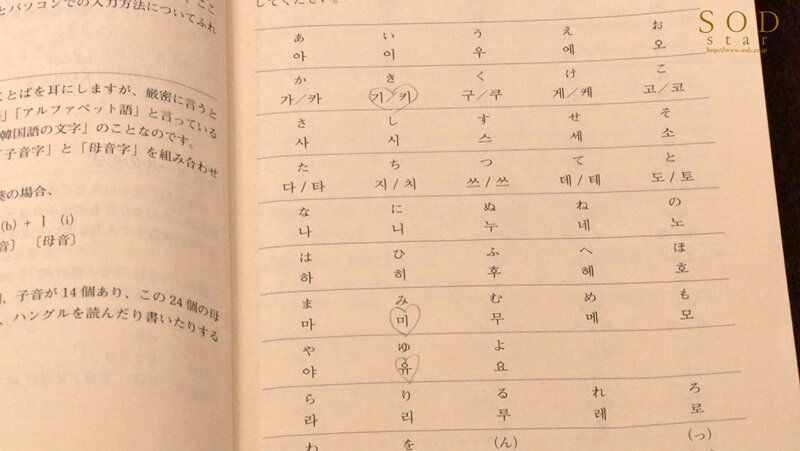 、ここ
とパソコンでの入力方法についてふれ
ことばを耳にしますが、厳密に言うと
」「アルファベット語」と言っている
韓国語の文字」のことなのです。
「子音字」と「母音字」を組み合わせ
葉の場合、
(b) + ㅣ (i)
音〕 〔母音〕
、子音が14個あり、この24個の母
、ハングルを読んだり書いたりする
してください。
あ い う え お
아 이 우 에 오
か き く け こ
가/카 기/키 구/쿠 게/케 고/코
さ し す せ そ
사 시 스 세 소
た ち つ て と
다/타 지/치 쓰/쓰 데/테 도/토
な に ぬ ね の
나 니 누 네 노
は ひ ふ へ ほ
하 히 후 헤 호
ま み む め も
마 미 무 메 모
や ゆ よ
야 유 요
ら り る れ ろ
라 리 루 레 로
わ を (ん) (っ)
SOD
star
http://www.sodc.co.jp